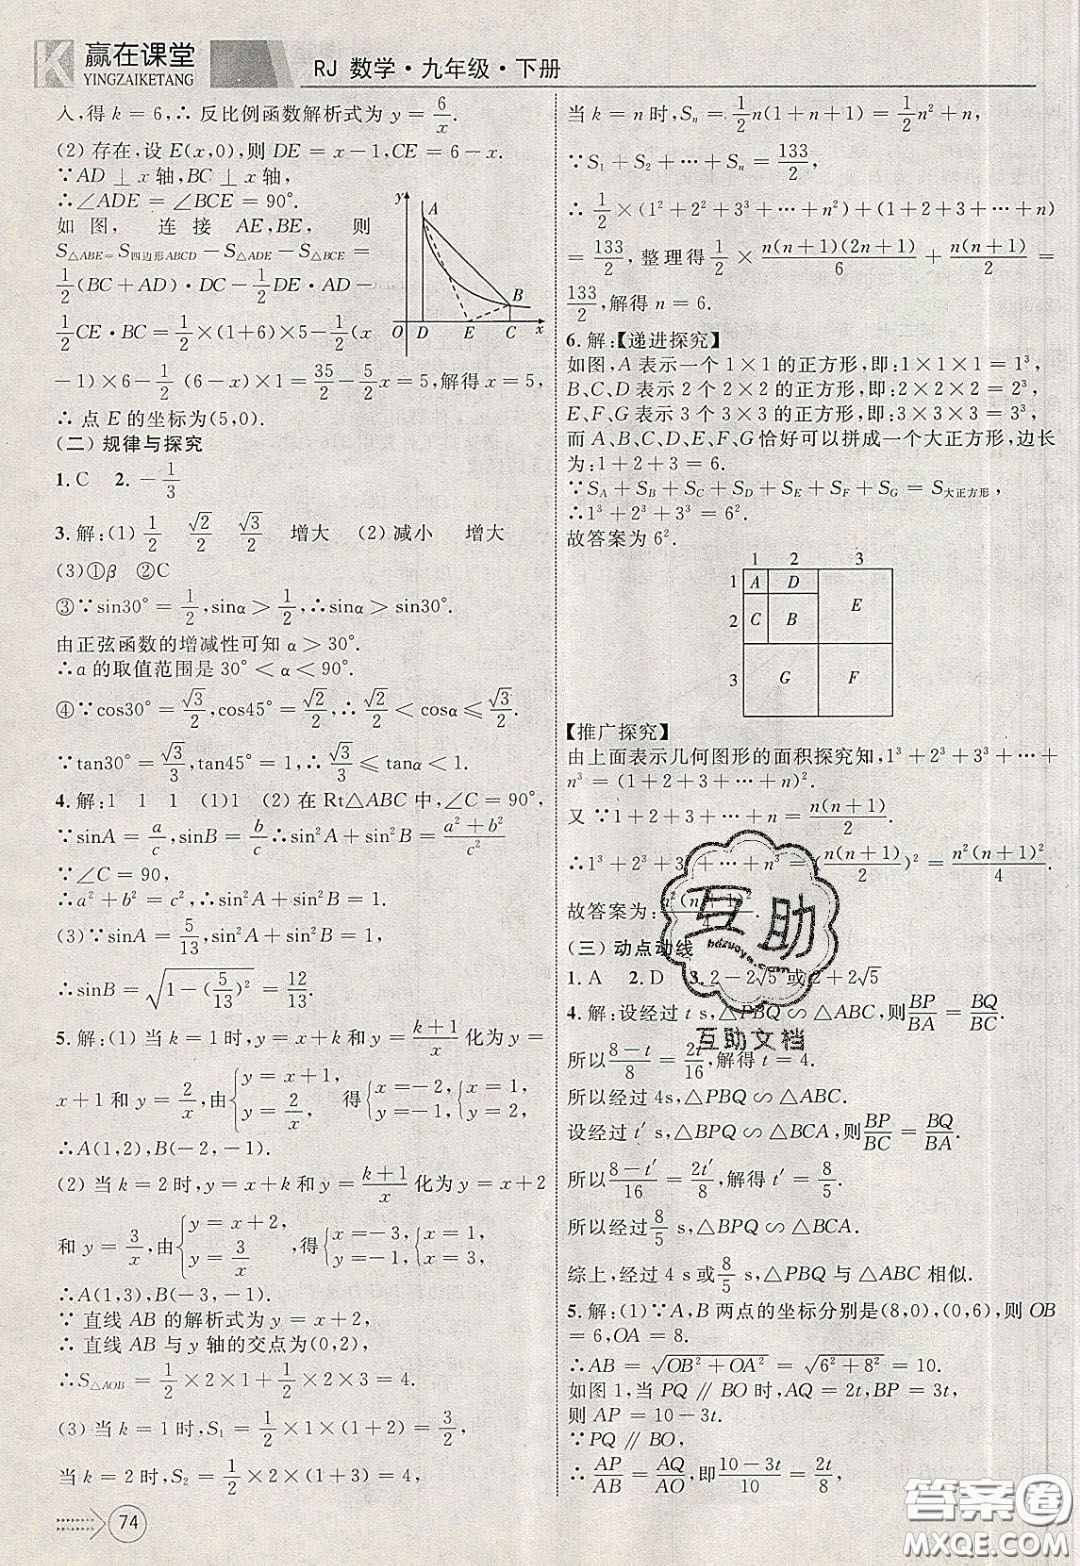 K 赢在课堂
YINGZAIKETANG
RJ 数学·九年级·下册
入,得 k=6,∴ 反比例函数解析式为 y=6/x.
(2) 存在,设 E(x,0),则 DE=x-1,CE=6-x.
∵AD⊥x 轴,BC⊥x 轴,
∴∠ADE=∠BCE=90°.
如图, 连接 AE,BE, 则
S△ABE=S四边形ABCD-S△ADE-S△BCE=
1/2(BC+AD)·DC-1/2DE·AD-
1/2CE·BC=1/2×(1+6)×5-1/2(x
-1)×6-1/2(6-x)×1=35/2-5/2x=5,解得 x=5,
∴ 点 E 的坐标为(5,0).
y A B O D E C x
(二) 规律与探究
1.C 2.-1/3
3.解:(1) 1/2 √2/2 √3/2 增大 (2) 减小 增大
(3)①β ②C
③∵sin30°=1/2,sinα>1/2,∴sinα>sin30°.
由正弦函数的增减性可知 α>30°.
∴a 的取值范围是 30°<α<90°.
④∵cos30°=√3/2,cos45°=√2/2,∴√2/2<cosα≤√3/2.
∵tan30°=√3/3,tan45°=1,∴√3/3≤tanα<1.
4.解:1 1 1 (1)1 (2) 在 Rt△ABC 中,∠C=90°,
∵sinA=a/c,sinB=b/c∴sin²A+sin²B=(a²+b²)/c²
∵∠C=90,
∴a²+b²=c²,∴sin²A+sin²B=1.
(3)∵sinA=5/13,sin²A+sin²B=1,
∴sinB=√(1-(5/13)²)=12/13.
5.解:(1) 当 k=1 时,y=x+k 和 y=(k+1)/x 化为 y=
x+1 和 y=2/x,由{y=x+1, y=2/x, 得{x=1, y=2, {x=-2, y=-1,
∴A(1,2),B(-2,-1).
(2) 当 k=2 时,y=x+k 和 y=(k+1)/x 化为 y=x+2
和 y=3/x,由{y=x+2, y=3/x ,得{x=-3, y=-1, {x=1, y=3,
∴A(1,3),B(-3,-1).
∵ 直线 AB 的解析式为 y=x+2,
∴ 直线 AB 与 y 轴的交点为(0,2),
∴S△AOB=1/2×2×1+1/2×2×3=4.
(3) 当 k=1 时,S₁=1/2×1×(1+2)=3/2,
当 k=2 时,S₂=1/2×2×(1+3)=4,
74
当 k=n 时,Sₙ=1/2n(1+n+1)=1/2n²+n,
∵S₁+S₂+…+Sₙ=133/2,
∴1/2×(1²+2²+3²+…+n²)+(1+2+3+…+n)
=133/2,整理得:1/2×n(n+1)(2n+1)/6+n(n+1)/2=
133/2,解得 n=6.
6.解:【递进探究】
如图,A 表示一个 1×1 的正方形,即:1×1×1=1³,
B、C、D 表示 2 个 2×2 的正方形,即:2×2×2=2³,
E、F、G 表示 3 个 3×3 的正方形,即:3×3×3=3³,
而 A、B、C、D、E、F、G 恰好可以拼成一个大正方形,边长
为:1+2+3=6.
∵S_A+S_B+S_C+S_D+S_E+S_F+S_G=S大正方形,
∴1³+2³+3³=6².
故答案为 6².
1 2 3
1 A D
E
2 C B
3 G F
【推广探究】
由上面表示几何图形的面积探究知,1³+2³+3³+…+
n³=(1+2+3+…+n)².
又 ∵1+2+3+…+n=n(n+1)/2.
∴1³+2³+3³+…+n³=(n(n+1)/2)²=n²(n+1)²/4.
故答案为:n²(n+1)²/4.
(三) 动点动线
1.A 2.D 3.2-2√5 或 2+2√5
4.解:设经过 t s,△PBQ∽△ABC,则BP/BA=BQ/BC.
所以(8-t)/8=2t/16,解得 t=4.
所以经过 4s,△PBQ∽△ABC.
设经过 t′ s,△BPQ∽△BCA,则BP/BC=BQ/BA.
所以(8-t′)/16=2t′/8,解得 t′=8/5.
所以经过8/5 s,△BPQ∽△BCA.
综上,经过 4 s 或8/5 s,△PBQ 与 △ABC 相似.
5.解:(1)∵A,B 两点的坐标分别是(8,0),(0,6),则 OB
=6,OA=8.
∴AB=√(OB²+OA²)=√(6²+8²)=10.
如图 1,当 PQ∥BO 时,AQ=2t,BP=3t,
则 AP=10-3t.
∵PQ∥BO,
∴AP/AB=AQ/AO,即(10-3t)/10=2t/8,
互助
hdzuoye.com
互助文档
答案圈
MXQE.COM